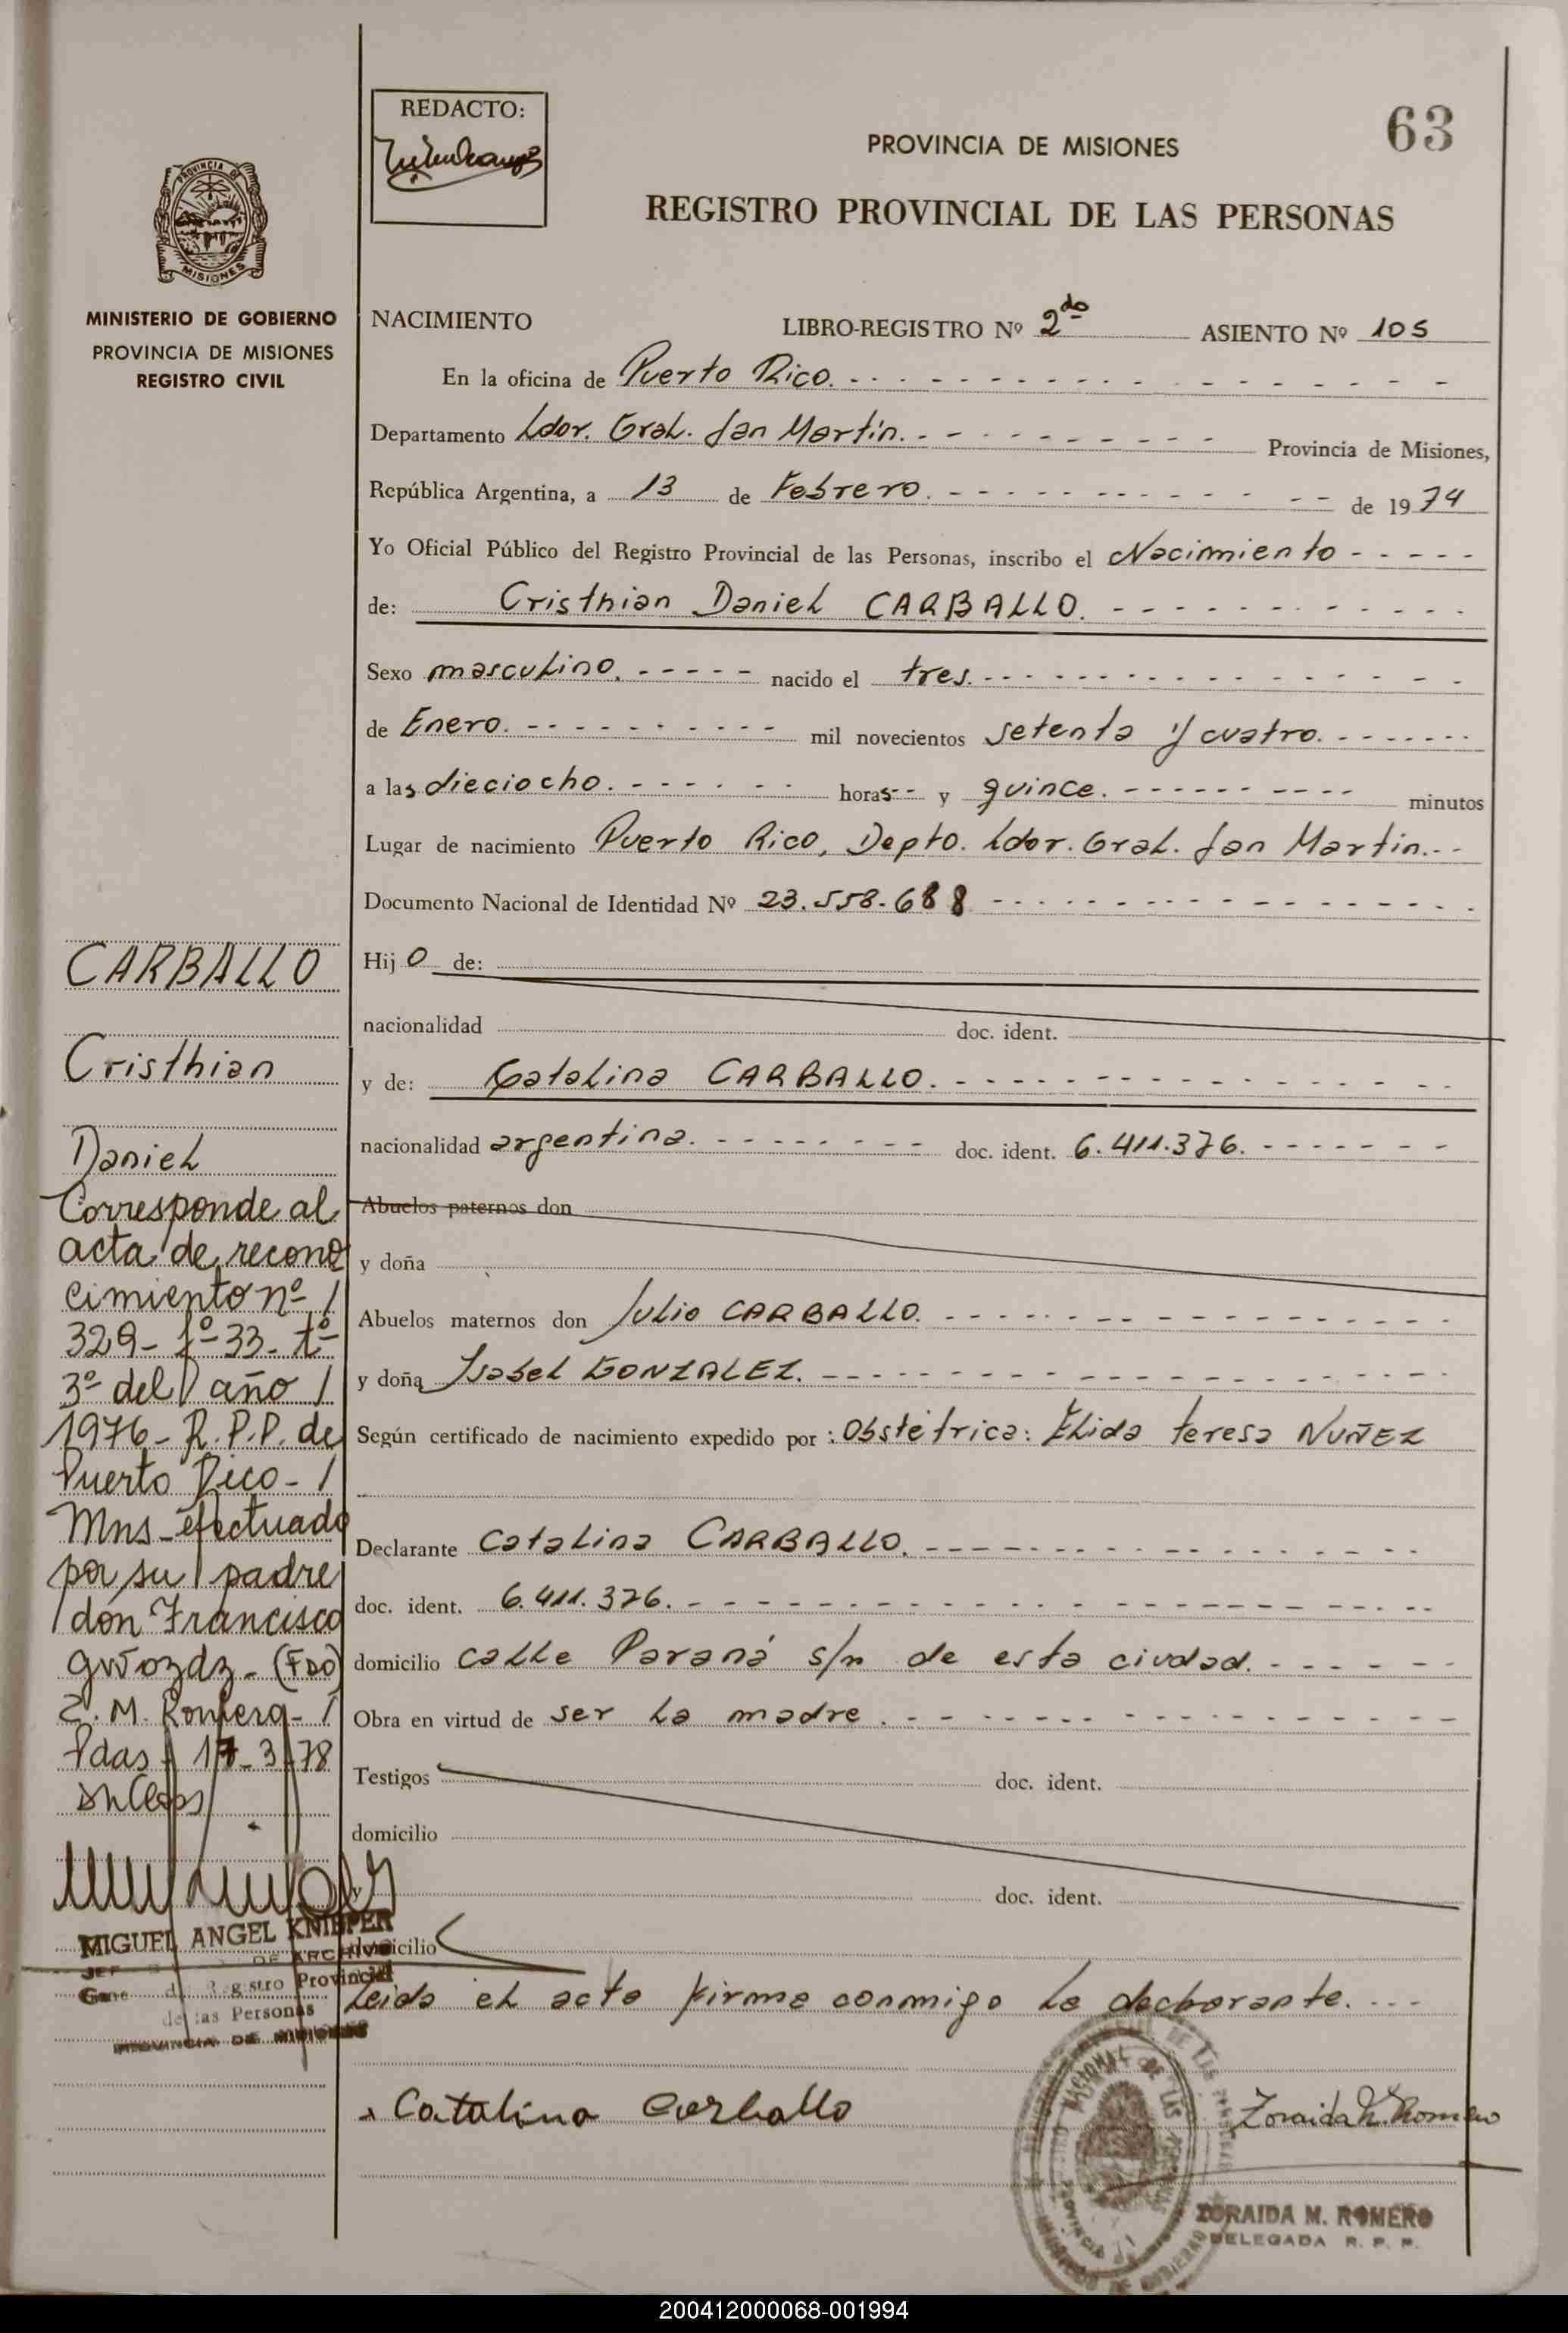 REDACTO:
63
PROVINCIA DE MISIONES
REGISTRO PROVINCIAL DE LAS PERSONAS
PROVINCIA DE
MISIONES
MINISTERIO DE GOBIERNO
PROVINCIA DE MISIONES
REGISTRO CIVIL
NACIMIENTO LIBRO-REGISTRO Nº 2do ASIENTO Nº 105
En la oficina de Puerto Rico.
Departamento Ldor. Gral. San Martín. Provincia de Misiones,
República Argentina, a 13 de Febrero. de 1974
Yo Oficial Público del Registro Provincial de las Personas, inscribo el Nacimiento
de: Cristhian Daniel CARBALLO.
Sexo masculino. nacido el tres.
de Enero. mil novecientos setenta y cuatro.
a las dieciocho. horas y quince. minutos
Lugar de nacimiento Puerto Rico, Depto. Ldor. Gral. San Martin.
Documento Nacional de Identidad Nº 23.558.688
Hijo de:
nacionalidad doc. ident.
y de: Catalina CARBALLO.
nacionalidad argentina. doc. ident. 6.411.376.
Abuelos paternos don
y doña
Abuelos maternos don Julio CARBALLO.
y doña Isabel GONZALEZ.
Según certificado de nacimiento expedido por : Obstétrica: Elida teresa NUÑEZ
Declarante Catalina CARBALLO.
doc. ident. 6.411.376.
domicilio calle Paraná s/n de esta ciudad.
Obra en virtud de ser la madre.
Testigos doc. ident.
domicilio
y doc. ident.
domicilio
Leida el acta firma conmigo la declarante.
Catalina Carballo
Zoraida M. Romero
ZORAIDA M. ROMERO
DELEGADA R. P. P.
CARBALLO
Cristhian
Daniel
Corresponde al
acta de recono
cimiento nº /
329- fº 33- tº
3º del año /
1976- R.P.P. de
Puerto Rico- /
Mns- efectuado
por su padre
don Francisco
gwozdz- (FDO)
Z. M. Romero- /
Pdas- 17-3-78
MIGUEL ANGEL KNIEPER
DE ARCHIVO
Registro Provincial
de las Personas
PROVINCIA DE MISIONES
200412000068-001994